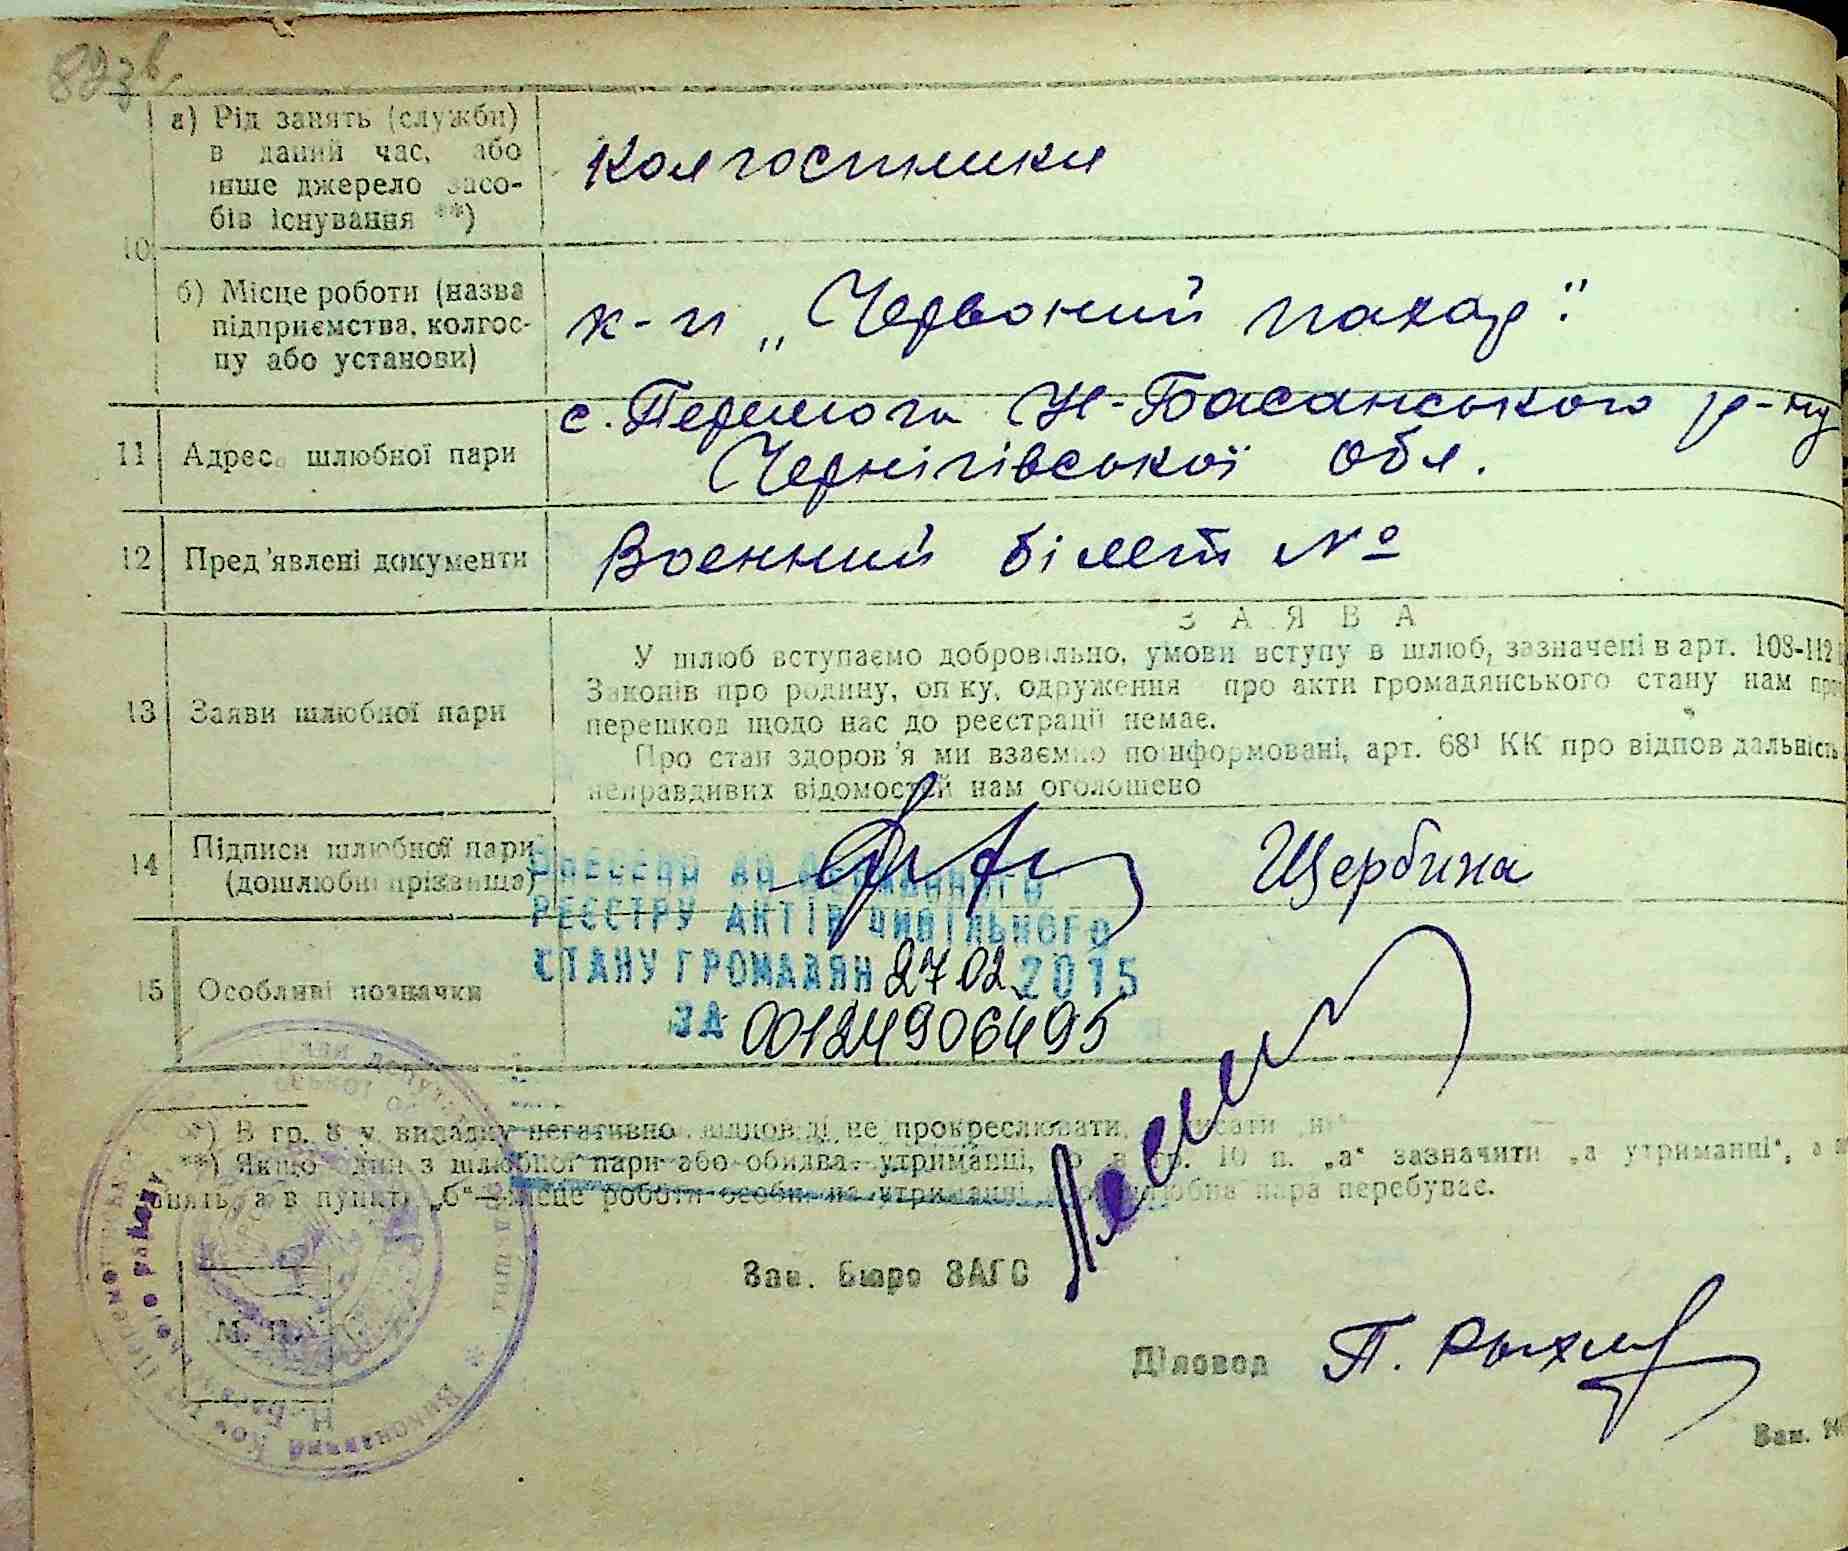 823
10
а) Рід занять (служби)
в даний час, або
інше джерело засо-
бів існування **)
Колгоспники
б) Місце роботи (назва
підприємства, колгос-
пу або установи)
к-п „Червоний пахар"
11
Адреса шлюбної пари
с. Перемога Н-Басанського р-ну
Чернігівської обл.
12
Пред'явлені документи
Военний білет №
13
Заяви шлюбної пари
ЗАЯВА
У шлюб вступаємо добровільно, умови вступу в шлюб, зазначені в арт. 108-112
Законів про родину, опіку, одруження про акти громадянського стану нам
перешкод щодо нас до реєстрації немає.
Про стан здоров'я ми взаємно поінформовані, арт. 68¹ КК про відповідальність
неправдивих відомостей нам оголошено
14
Підписи шлюбної пари
(дошлюбні прізвища)
Щербина
ВНЕСЕНО ДО ДЕРЖАВНОГО
РЕЄСТРУ АКТІВ ЦИВІЛЬНОГО
СТАНУ ГРОМАДЯН 27 02 2015
ЗА 00124906495
15
Особливі позначки
*) В гр. 8 у випадку негативно відповіді не прокреслювати,
**) Якщо один з шлюбної пари або обидва утриманці, то в гр. 10 п. „а" зазначити „а утриманні",
а в пункті „б" місце роботи особи, на утриманні шлюбна пара перебуває.
Зав. бюро ЗАГС
М. П.
Діловод
П. Рыхл
Зам. №